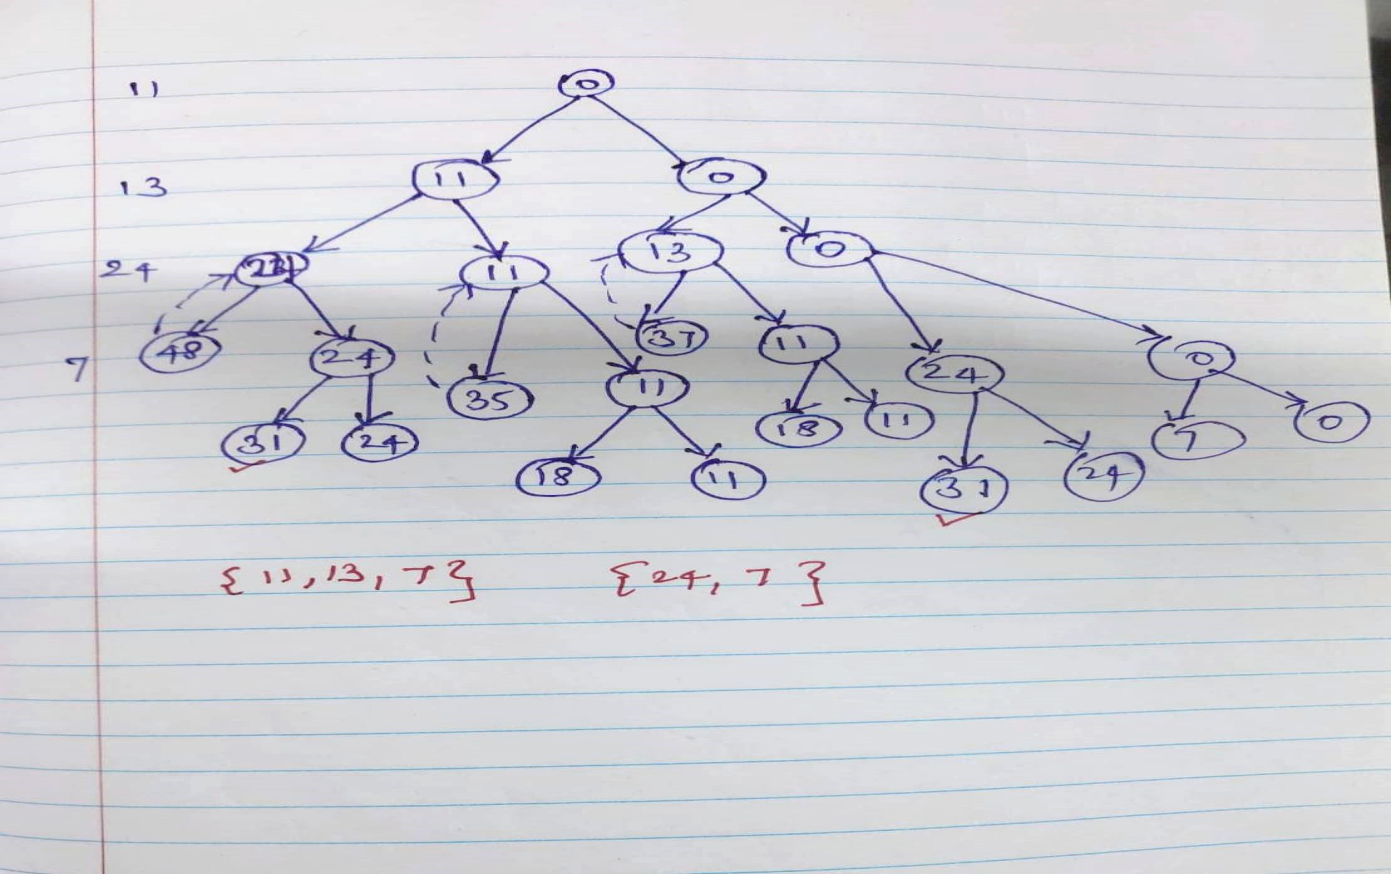 11 0
13 11 0
24 24 11 13 0
7 48 24 35 11 37 11 24 0
31 24 18 11 18 11 31 24 7 0
{11, 13, 7} {24, 7}